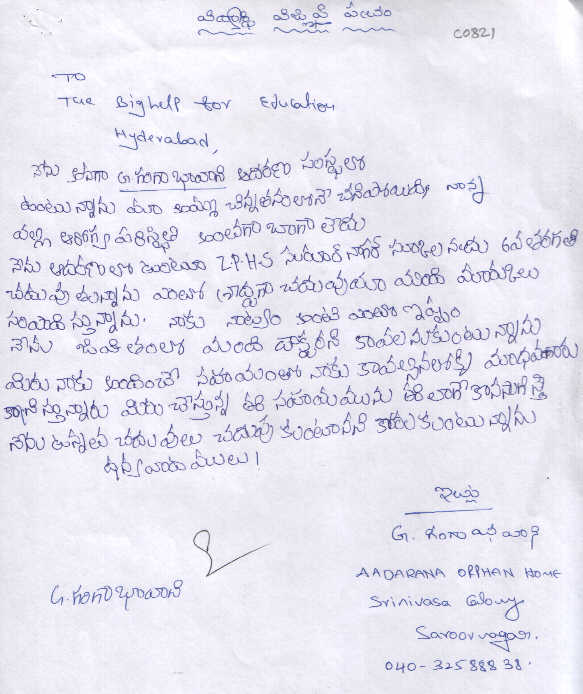 విద్యార్థి విజ్ఞప్తి పత్రం
C0821
TO
The Bighelp for Education
Hyderabad,
నేను అనగా G.గంగా భవాని ఆదరణ సంస్థలో
ఉంటున్నాను మా అమ్మ చిన్నతనంలోనే చనిపోయింది నాన్న
వల్ల ఆరోగ్య పరిస్థితి అంతగా బాగా లేదు
నేను ఆదరణలో ఉంటూ Z.P.H.S సరూర్ నగర్ నందు 6వ తరగతి
చదువు తున్నాను ఎంతో చదువుచూ మంచి మార్కులు
సంపాదిస్తున్నాను. నాకు నాట్యం అంటే ఎంతో ఇష్టం
నేను జీవితంలో మంచి డాక్టరుని కావాలనుకుంటున్నాను
మీరు నాకు అందించే సహాయంతో నాకు కావల్సినవి
మీరు చేస్తున్న ఈ సహాయమును ఈలాగే కొనసాగిస్తే
నేను ఉన్నత చదువులు చదువు కుంటానని కోరుకుంటున్నాను
ధన్యవాదములు!
ఇట్లు
G. గంగా భవాని
AADARANA ORPHAN HOME
Srinivasa Colony
Saroornagar.
040-3258838.
G.గంగా భవాని